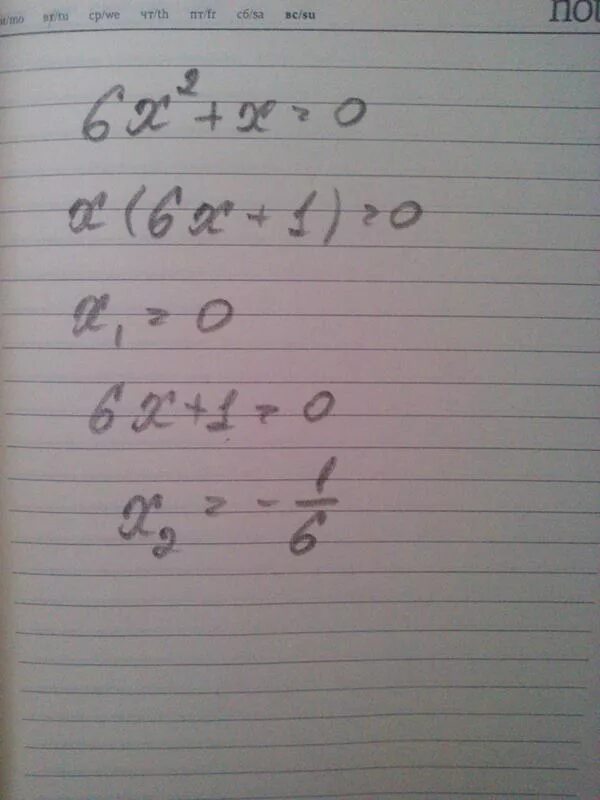 вт/tu ср/we чт/th пт/fr сб/sa вс/su
6x² + x = 0
x(6x + 1) = 0
x₁ = 0
6x + 1 = 0
x₂ = - 1/6